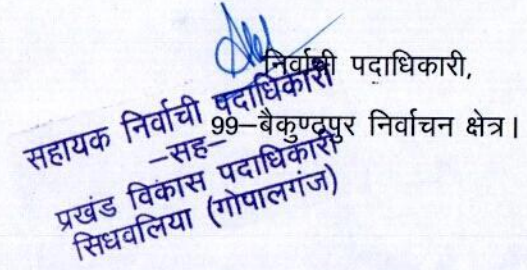 निर्वाची पदाधिकारी,
99–बैकुण्ठपुर निर्वाचन क्षेत्र।
सहायक निर्वाची पदाधिकारी
–सह–
प्रखंड विकास पदाधिकारी
सिधवलिया (गोपालगंज)